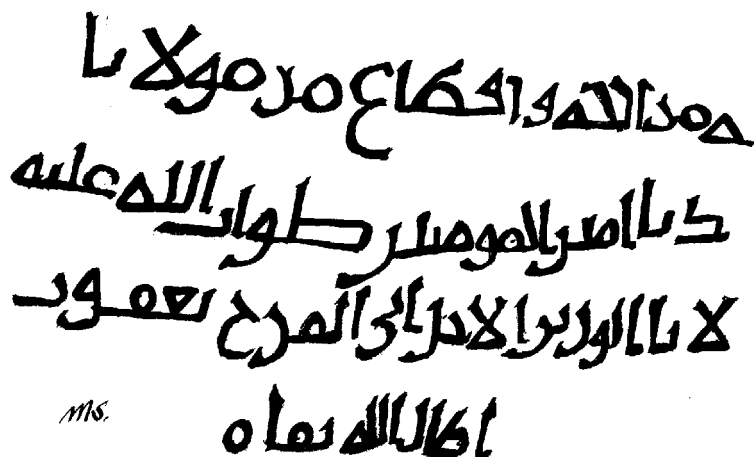 من الله واقطاع من مولانا
دنا امير المومنين صلوات الله عليه
لانا الوزير الاجل ابى الفرج يعقوب
اطال الله بقاه
MS.